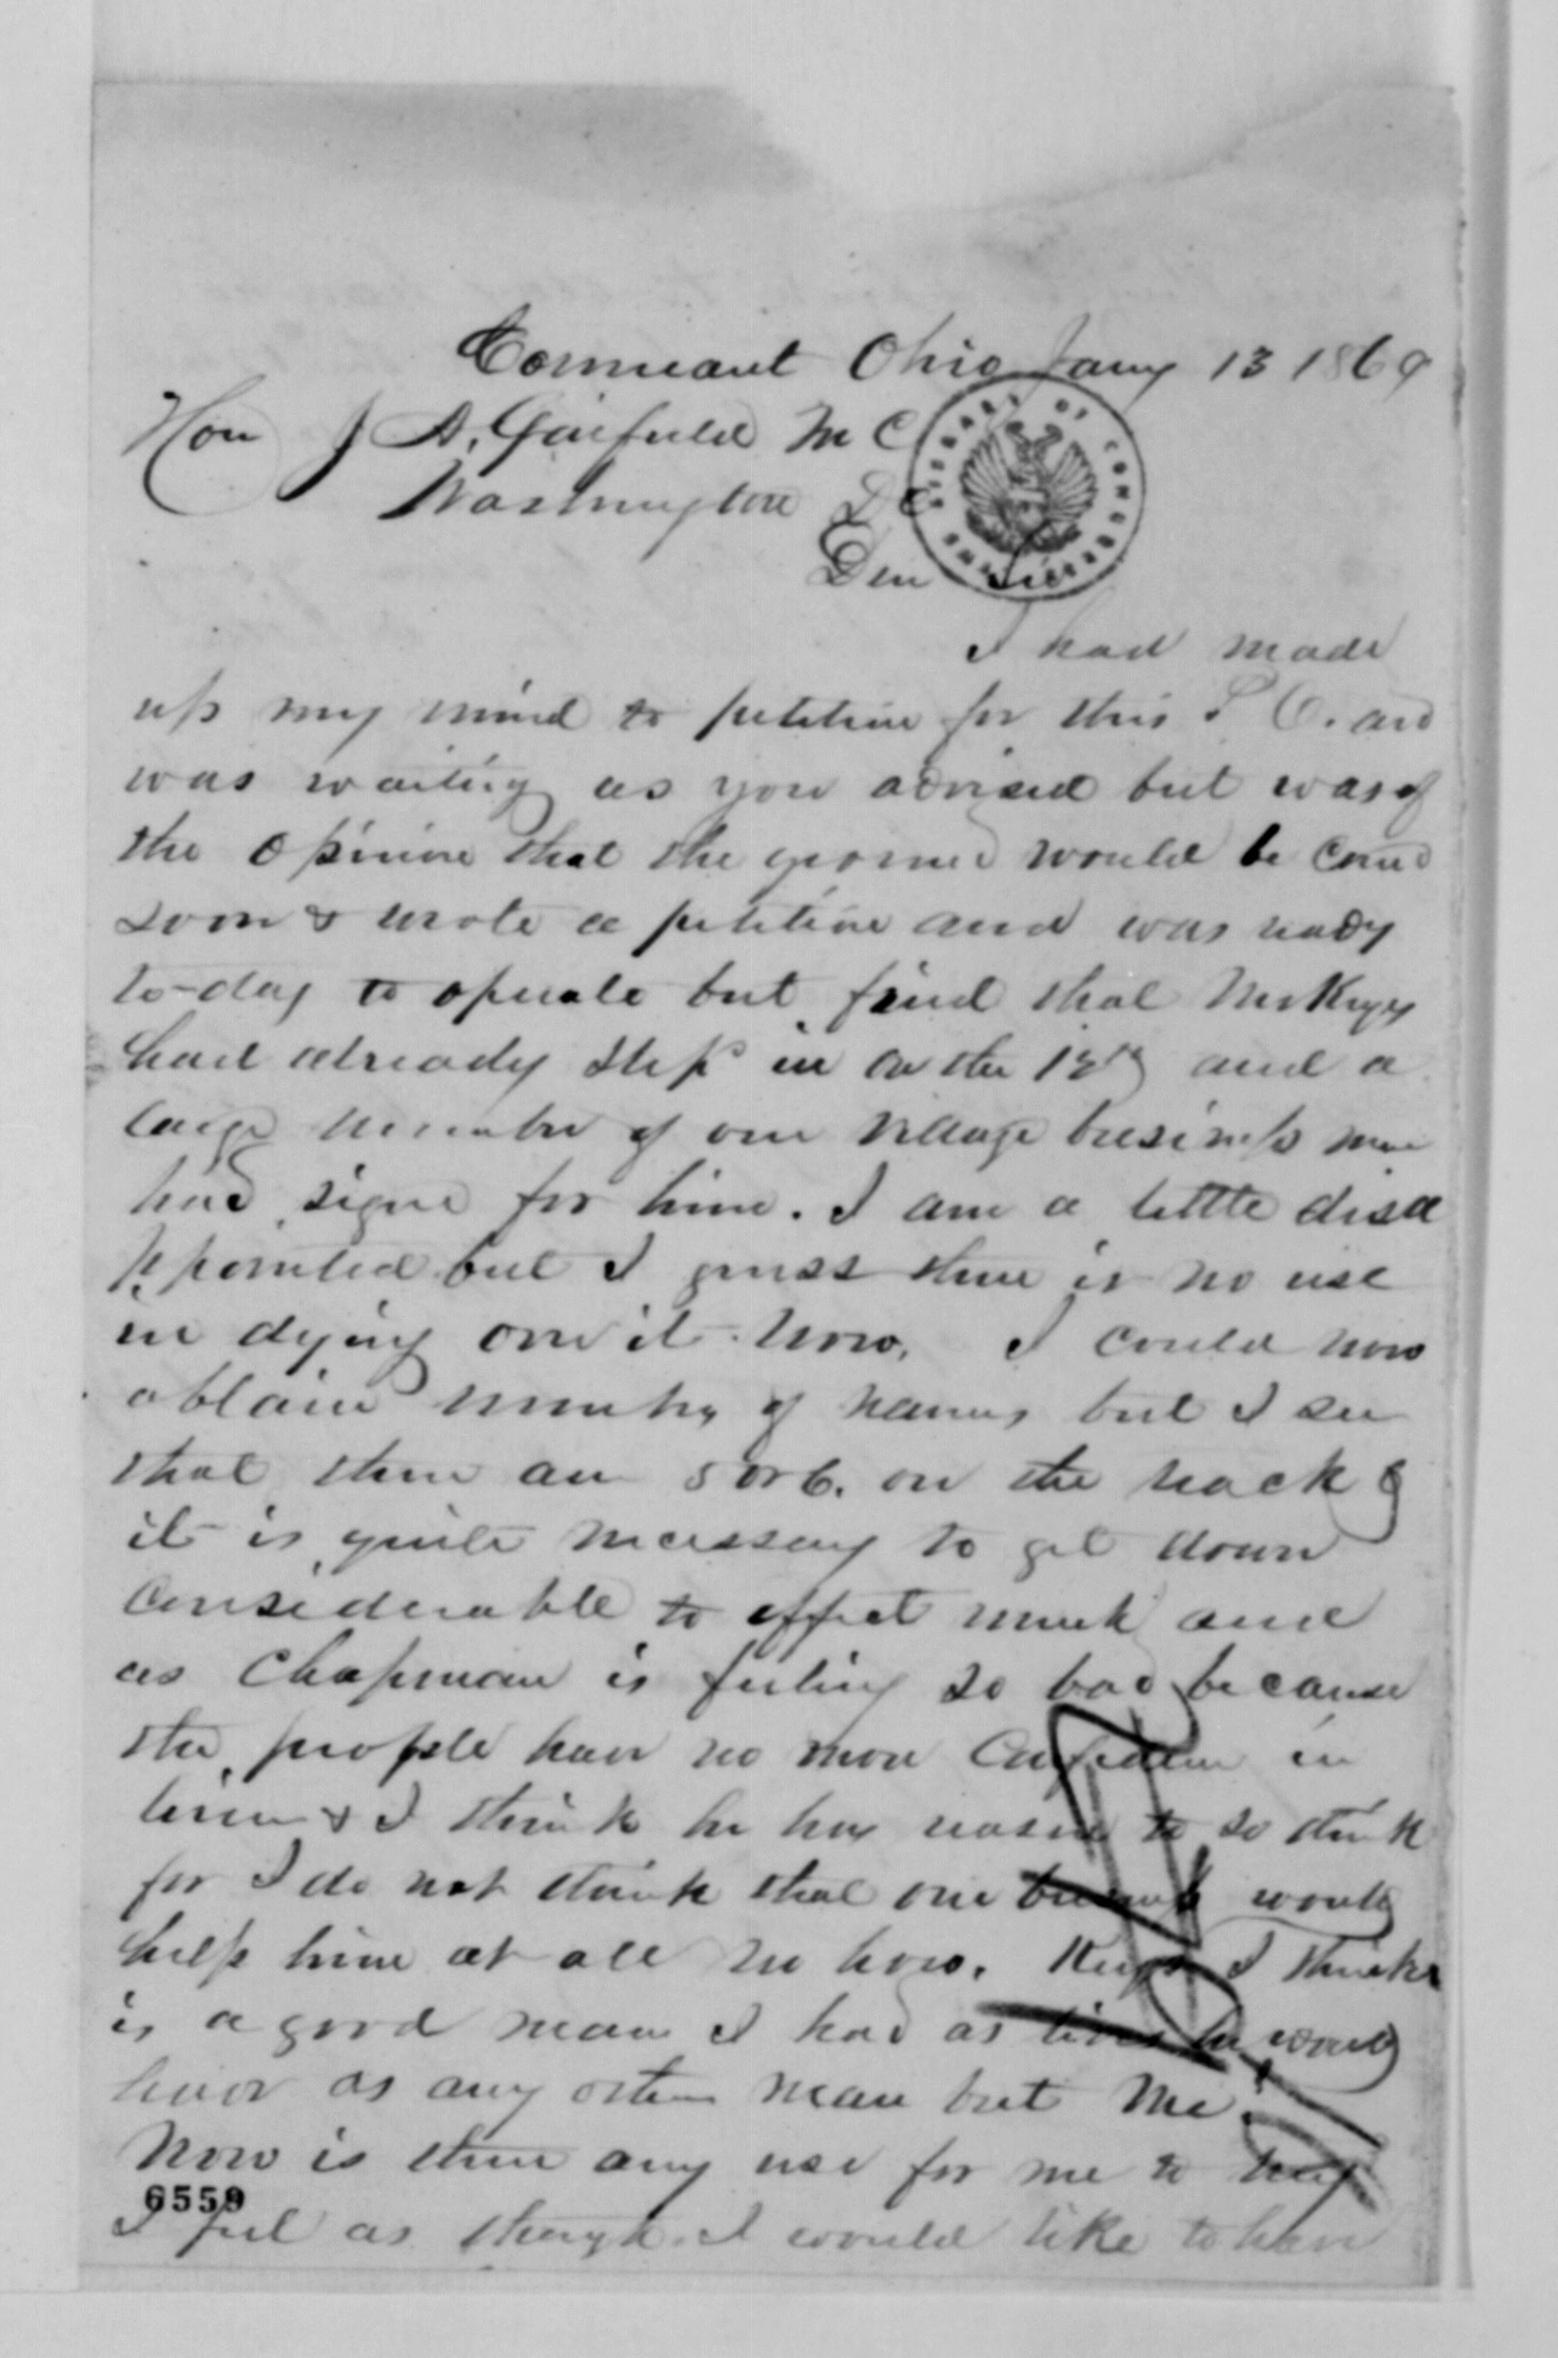 Conneaut Ohio Jany 13 1869
Hon J A. Garfield M C
Washington D C
LIBRARY OF CONGRESS
Dear Sir
I had made
up my mind to petition for this P O. and
was waiting as you advised but was of
the opinion that the ground would be cov
soon & wrote a petition and was ready
to-day to operate but find that Mr Keyes
had already step in on the 12th and a
large number of our village business men
had signe for him. I am a little disa
ppointed but I guess there is no use
in dying over it now. I could now
obtain number of names but I see
that there are 5 or 6. on the track &
it is quite necessary to get down
considerable to effect much and
as Chapman is feeling so bad because
the people have no more confidence in
him & I think he has reason to so think
for I do not think that one would
help him at all no how. Keyes I think
is a good man I had as lives he would
have as any other man but me.
Now is there any use for me to try
I feel as though I would like to have
6559